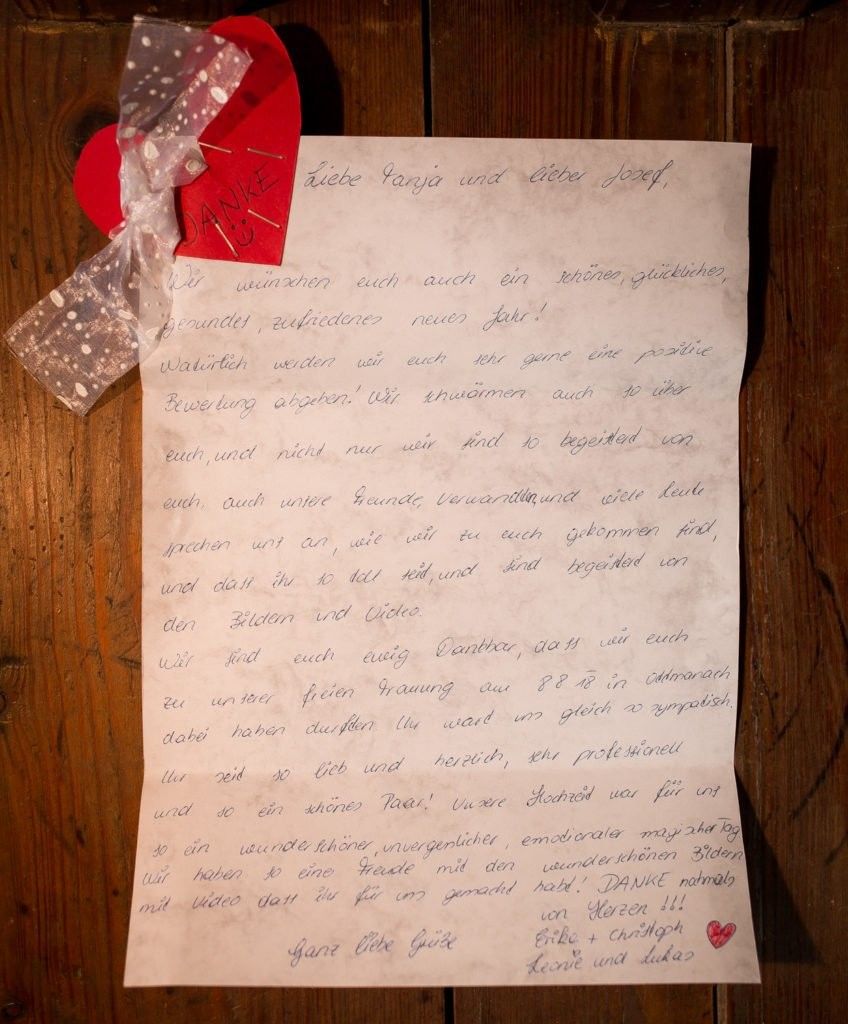 DANKE
Liebe Tanja und lieber Josef,
Wir wünschen euch auch ein schönes, glückliches,
gesundes, zufriedenes neues Jahr!
Natürlich werden wir euch sehr gerne eine positive
Bewertung abgeben! Wir schwärmen auch so über
euch, und nicht nur wir sind so begeistert von
euch, auch unsere Freunde, Verwandten, und viele Leute
sprechen uns an, wie wir zu euch gekommen sind,
und dass ihr so toll seid, und sind begeistert von
den Bildern und Video.
Wir sind euch ewig Dankbar, dass wir euch
zu unserer freien Trauung am 8 8 18 in
dabei haben durften. Ihr ward uns gleich so sympatisch.
Ihr seid so lieb und herzlich, sehr professionell
und so ein schönes Paar! Unsere Hochzeit war für uns
so ein wunderschöner, unvergenlicher, emotionaler magischer Tag
Wir haben so eine Freude mit den wunderschönen Bildern
mit Video dass ihr für uns gemacht habt! DANKE nochmals
von Herzen !!!
Ganz liebe Grüße
Erika + Christoph
Leonie und Lukas